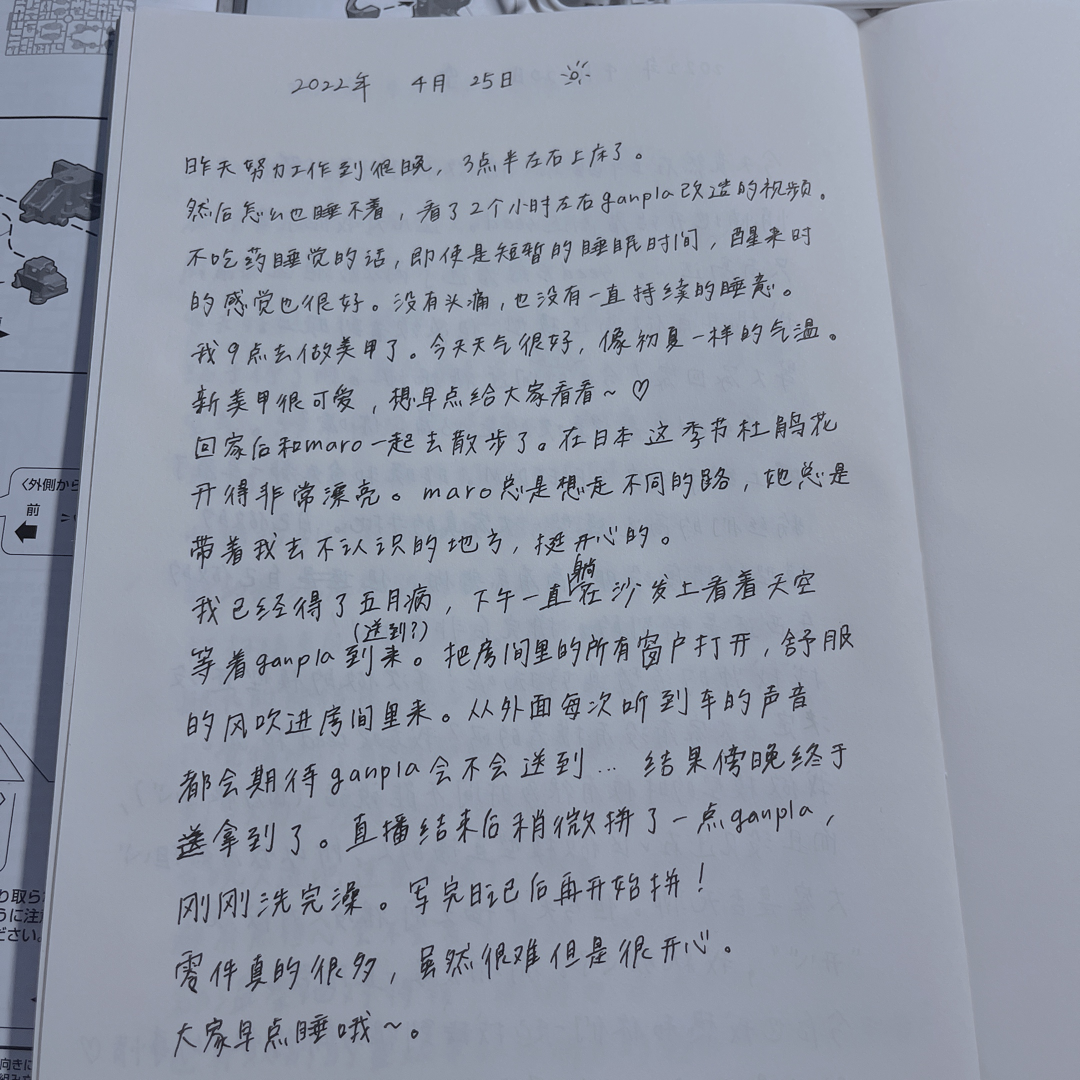 2022年 4月 25日
昨天努力工作到很晚，3点半左右上床了。
然后怎么也睡不着，看了2个小时左右ganpla改造的视频。
不吃药睡觉的话，即使是短暂的睡眠时间，醒来时
的感觉也很好。没有头痛，也没有一直持续的睡意。
我9点去做美甲了。今天天气很好，像初夏一样的气温。
新美甲很可爱，想早点给大家看看~♡
回家后和maro一起去散步了。在日本这季节杜鹃花
开得非常漂亮。maro总是想走不同的路，她总是
带着我去不认识的地方，挺开心的。
躺
我已经得了五月病，下午一直在沙发上看着天空
(送到?)
等着ganpla到来。把房间里的所有窗户打开，舒服
的风吹进房间里来。从外面每次听到车的声音
都会期待ganpla会不会送到... 结果傍晚终于
拿到了。直播结束后稍微拼了一点ganpla，
刚刚洗完澡。写完日记后再开始拼！
零件真的很多，虽然很难但是很开心。
大家早点睡哦~。
〈外側から
前
り取ら
うに注
ださい。
向きに